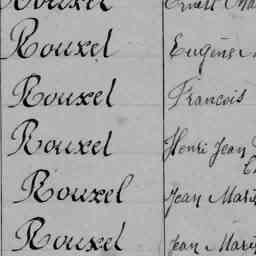 Rouxel Ernest
Rouxel Eugène
Rouxel Francois
Rouxel Henri Jean
Rouxel Jean Marie
Rouxel Jean Marie